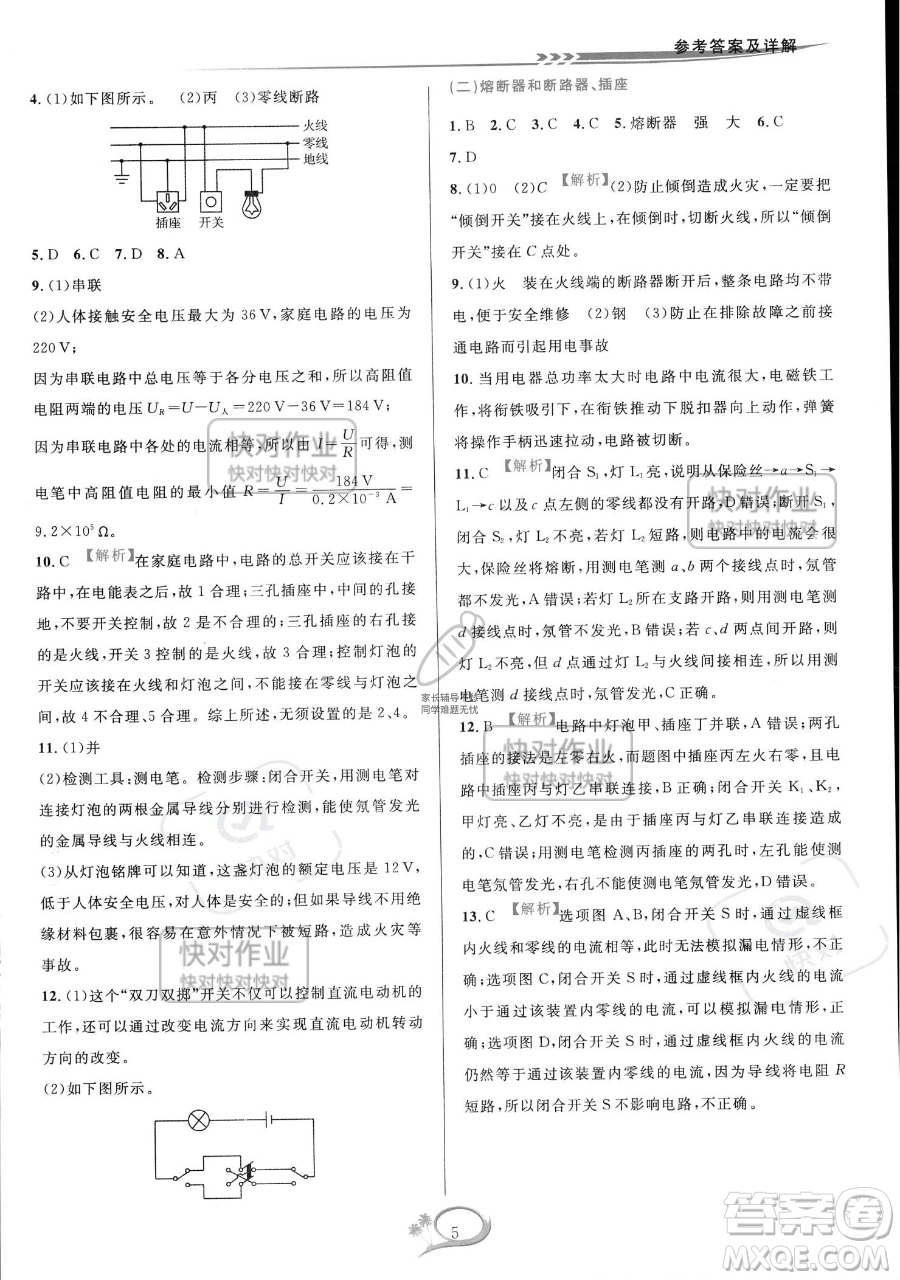 参考答案及详解
4.(1)如下图所示。 (2)丙 (3)零线断路
火线
零线
地线
插座 开关
5.D 6.C 7.D 8.A
9.(1)串联
(2)人体接触安全电压最大为36V,家庭电路的电压为
220V;
因为串联电路中总电压等于各电压之和,所以高阻值
电阻两端的电压U_R=U-U_人=220V-36V=184V,
因为串联电路中各处的电流相等,所以由I=U/R可得,测
电笔中高阻值电阻的最小值R=U/I=184V/(0.2×10⁻³A)=
9.2×10⁵Ω。
10.C 【解析】在家庭电路中,电路的总开关应该接在干
路中,在电能表之后,故1合理;三孔插座中的孔接
地,不要开关控制,故2是不合理的;三孔插座的右孔接
的是火线,开关3控制的是火线,故合理;控制灯泡的
开关应该接在火线和灯泡之间,不能接在零线与灯泡
间,故4不合理、5合理。综上所述,无须设置的是2、4。
11.(1)并
(2)检测工具:测电笔。检测步骤:闭合开关,用测电笔对
连接灯泡的两根金属导线分别进行检测,能使氖管发光
的金属导线与火线相连。
(3)从灯泡铭牌可以知道,这盏灯泡的额定电压是12V,
低于人体安全电压,对人体是安全的;如果导线不用
绝缘材料包裹,容易在意外情况下被短路,造成火灾等
事故。
12.(1)这个“双刀双掷”开关不仅可以控制直流电动机的
工作,还可以通过改变电流方向来实现直流电动机转动
方向的改变。
(2)如下图所示。
(二)熔断器和断路器、插座
1.B 2.C 3.C 4.C 5.熔断器 强 大 6.C
7.D
8.(1)0 (2)C 【解析】(2)防止倾倒造成火灾,一定要把
“倾倒开关”接在火线上,在倾倒时,切断火线,所以“倾倒
开关”接在C点处。
9.(1)火 装在火线端的断路器断开后,整条电路均不带
电,便于安全维修 (2)钢 (3)防止在排除故障之前接
通电路而引起用电事故
10.当用电器总功率太大时电路中电流很大,电磁铁工
作,将衔铁吸引,在衔铁推动下脱扣器向上动作,弹簧
将操作手柄迅速拉动,电路被切断。
11.C 【解析】闭合S₁,灯L₁亮,说明从保险丝→a→S₁→
L₁→c以及c点左侧的零线都没有开路,D错误;断开S₁,
闭合S₂,灯L₂不亮,若灯L₂短路,则电路中的电流会很
大,保险丝将熔断,用测电笔测a、b两点时,氖管不
发光,A错误;若灯L₂所在支路开路,则用测电笔测
d接线点时,氖管不发光,B错误;若c、d两点间开路,则灯
L₂不亮,但d点通过灯L₂与火线间接相连,用测
电笔测d接线点时,氖管发光,C正确。
12.B 【解析】电路中灯泡甲、插座丁并联,A错误;两孔
插座的接法是左零右火,而题图中插座丙左火右零,B正
确;电路中插座丙与灯乙串联连接,若闭合开关K₁、K₂,
甲灯亮,乙灯不亮,可能是插座丙与灯乙串联连接造成
的,C错误;用测电笔检测丙插座时,左孔能使测电笔氖管
发光,右孔不能使测电笔氖管发光,D错误。
13.C 【解析】选项图A、B,闭合开关S时,通过虚线框
内火线和零线的电流相等,此时无法模拟漏电情形,不正
确;选项图C,闭合开关S时,通过虚线框内火线的电流
小于通过该装置内零线的电流,可以模拟漏电情形,正
确;选项图D,闭合开关S时,通过虚线框内火线的电流
仍然等于通过该装置内零线的电流,因为导线将电阻R
短路,所以闭合开关S不影响电路,不正确。
5
快对作业
快对快对快对
快对作业
快对快对快对
快对作业
快对快对快对
快对作业
快对快对快对
家长辅导
同学难题无忧
答案卷
MXQE.COM